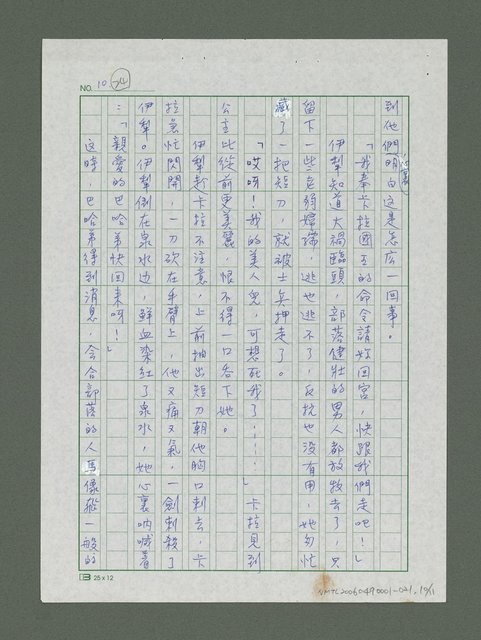 NO. 10 24
到他們心裏明白這是怎広一回事。
「我奉卡拉國王的命令請妳回宮，快跟我們走吧！」
伊犁知道大禍臨頭，部落健壯的男人都放牧去了，只
留下一些老弱婦孺，逃也逃不了，反抗也沒有用，她匆忙
藏了一把短刀，就被士兵押走了。
「哎呀！我的美人兒，可想死我了……」卡拉見到
公主比從前更美麗，恨不得一口吞下她。
伊犁趁卡拉不注意，上前抽出短刀朝他胸口刺去，卡
拉急忙閃開，一刀砍在手臂上，他又痛又氣，一劍刺殺了
伊犁。伊犁倒在泉水边，鮮血染紅了泉水，她心裏吶喊着
：「親愛的巴哈弟快回來呀！」
這時，巴哈弟得到消息，会合部落的人馬像旋一般的
25×12
NMTL20060490001-021, 10/11